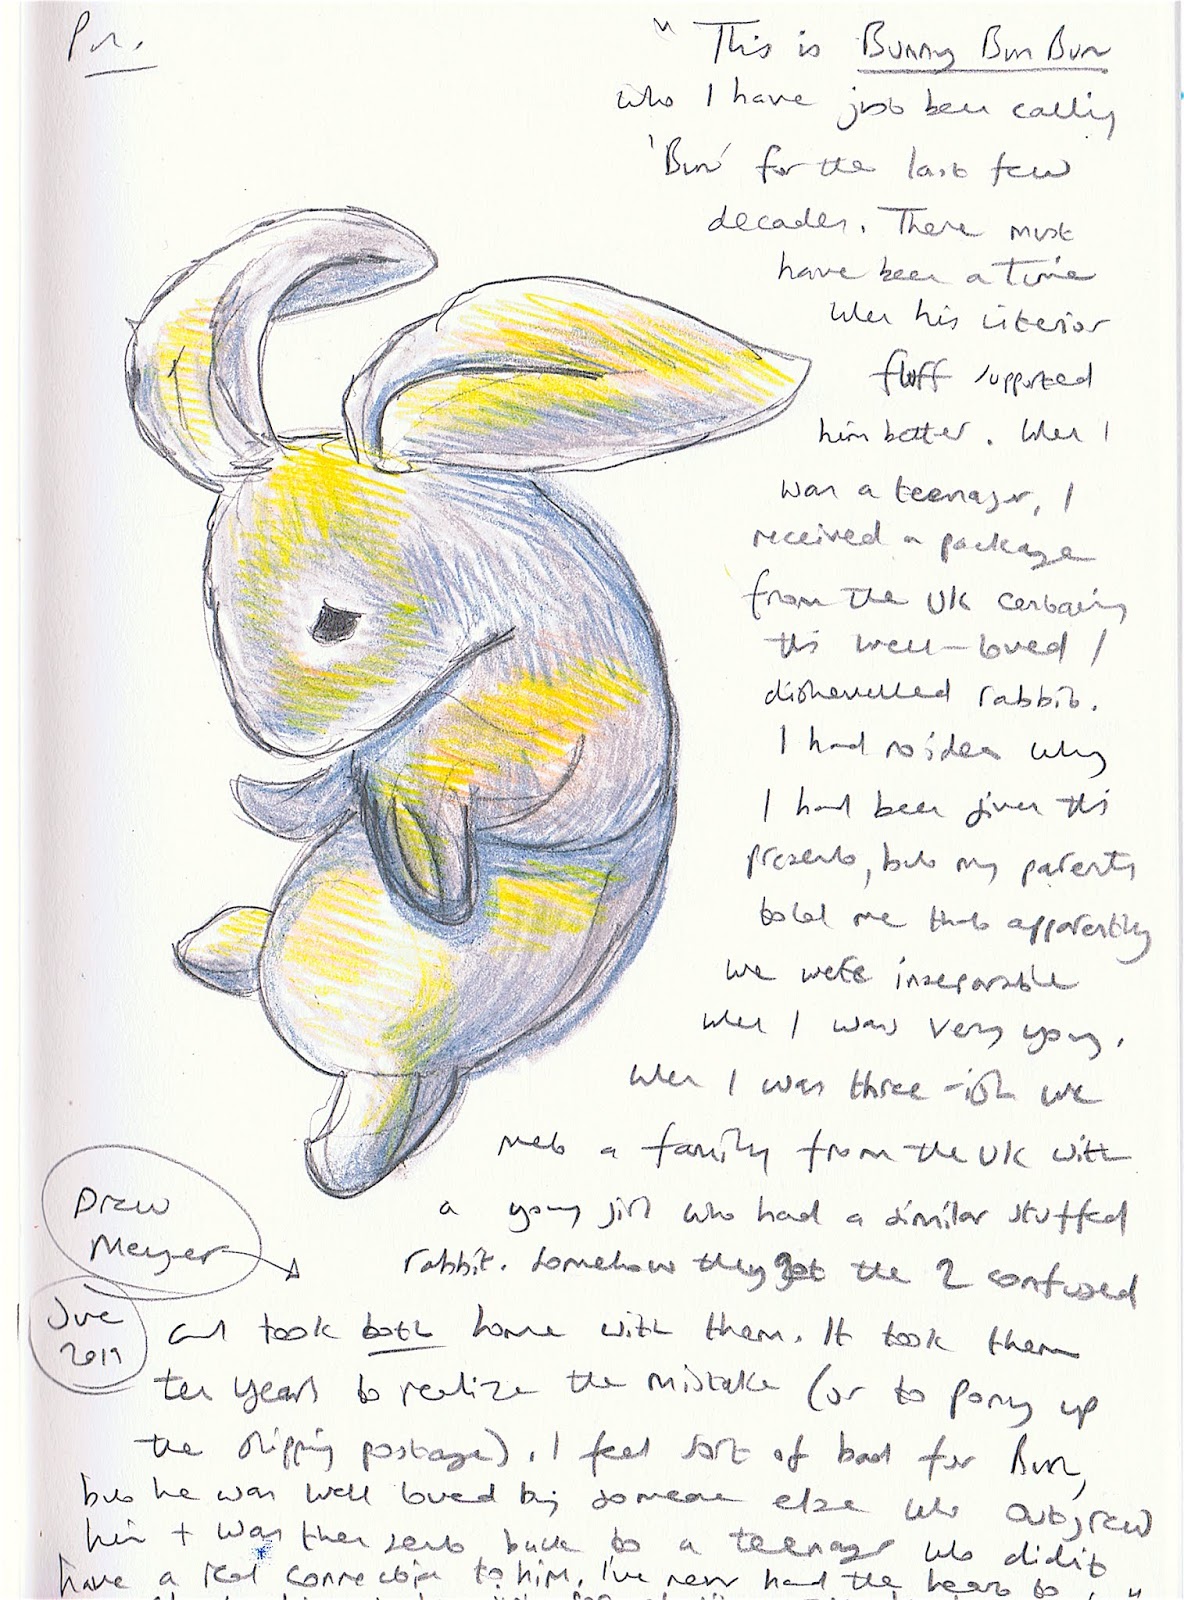 Bun.
"This is Bunny Bun Bun
who I have just been calling
'Bun' for the last few
decades. There must
have been a time
when his interior
fluff supported
him better. When I
was a teenager, I
received a package
from the UK containing
this well-loved /
dishevelled rabbit.
I had no idea why
I had been given this
present, but my parents
told me that apparently
we were inseparable
when I was very young.
When I was three-ish we
met a family from the UK with
a young girl who had a similar stuffed
rabbit. Somehow they got the 2 confused
and took both home with them. It took them
ten years to realize the mistake (or to pony up
the shipping postage). I feel sort of bad for Bun,
but he was well loved by someone else who outgrew
him + was then sent back to a teenager who didn't
have a real connection to him. I've never had the heart to
Drew
Meyer
June
2019